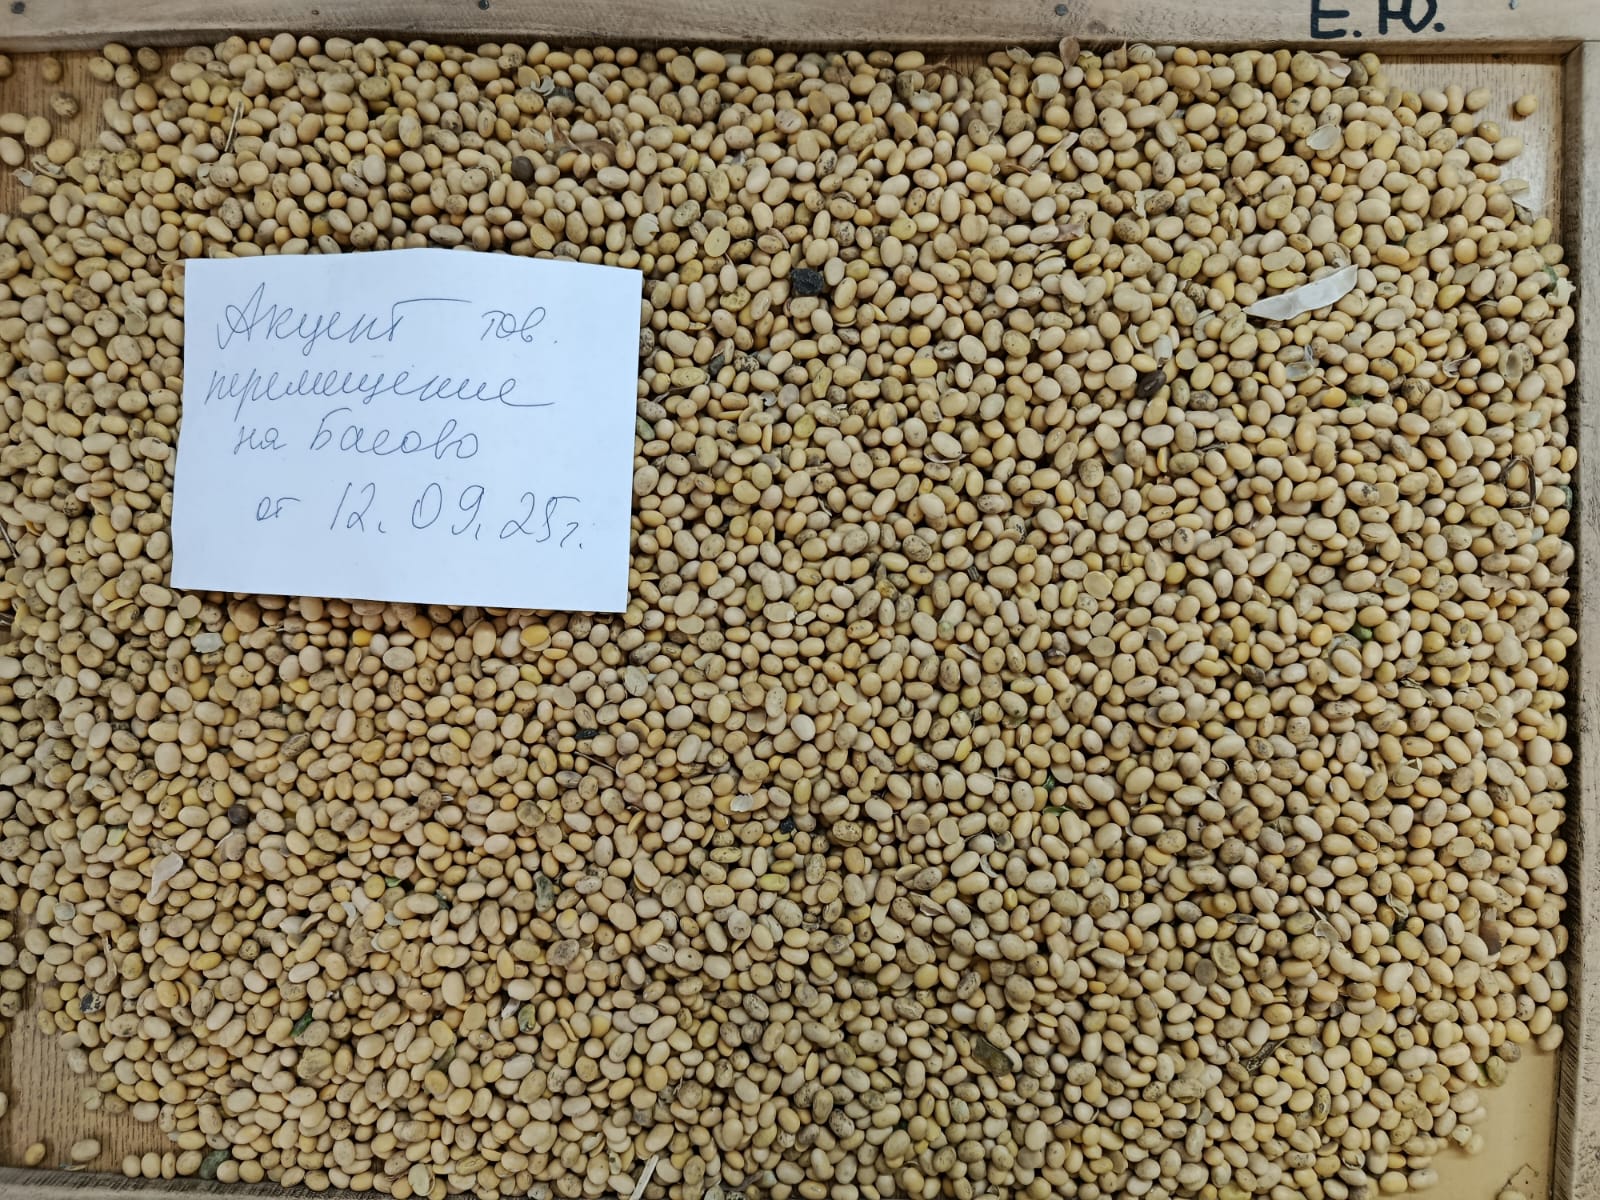 Е.Ю.
Акцент тов.
перемещение
на Басово
от 12.09.25г.